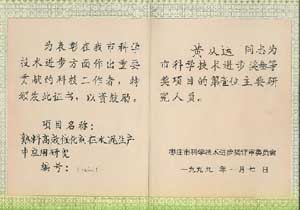 为表彰在我市科学
技术进步方面作出重要
贡献的科技工作者,特
颁发此证书,以资鼓励。
项目名称:
熟料高效催化剂在水泥生产
中应用研究
编号:
黄从运 同志为
市科学技术进步 等
奖项目的第 位主要研
究人员。
枣庄市科学技术进步奖评审委员会
一九九九年一月七日